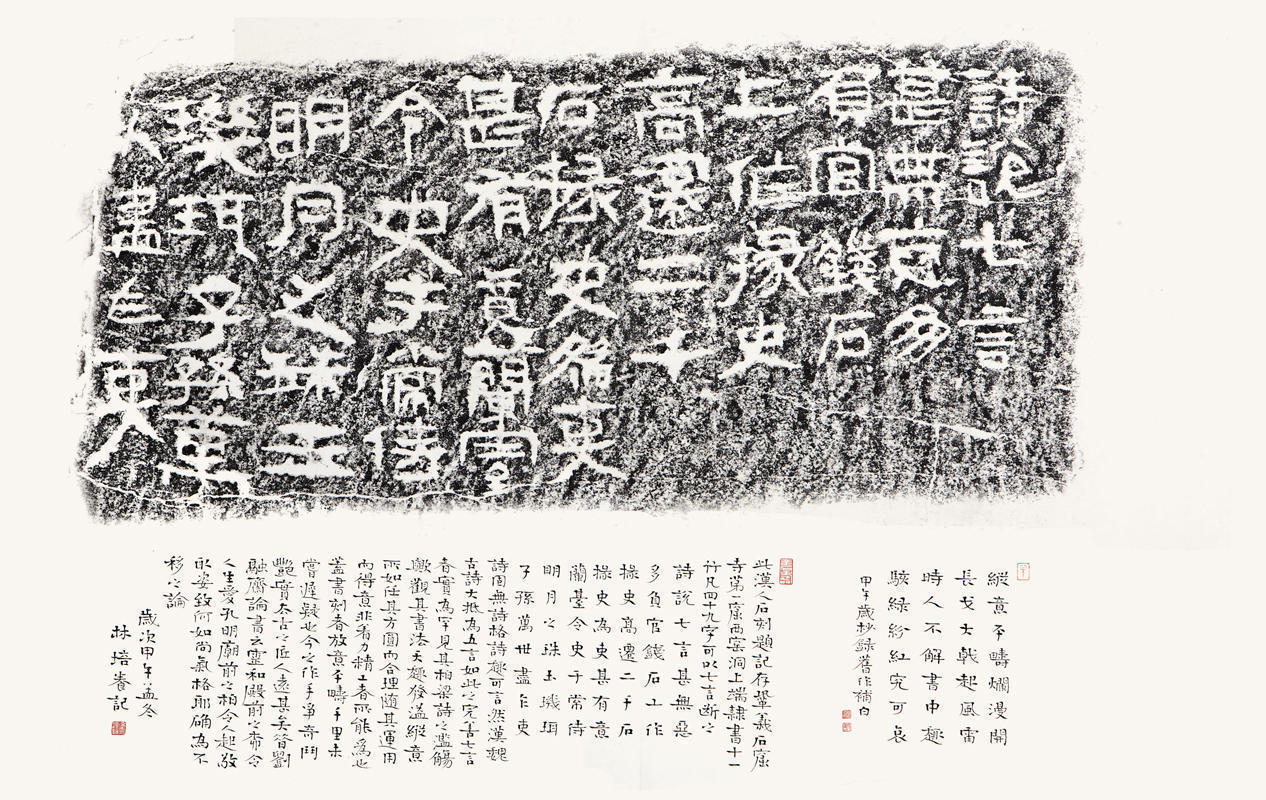 詩說七言
甚無忘多
負官錢石
上作掾史
高遷二千
石掾史為吏
甚有意蘭臺
令史于常侍
明月之珠玉
璣珥子孫萬
世盡乍吏
縱意平疇爛漫開
長戈大戟起風雷
時人不解書中趣
駭綠紛紅究可哀
甲午歲抄錄舊作補白
此漢人石刻題記存鞏義石窟
寺第一窟西窯洞上端隸書十一
行凡四十九字可以七言斷之
詩說七言甚無惡
多負官錢石上作
掾史高遷二千石
掾史為吏甚有意
蘭臺令史于常侍
明月之珠玉璣珥
子孫萬世盡乍吏
詩固無詩格詩趣可言然漢魏
古詩大抵為五言如此之完善七言
者實為罕見其柏梁詩之濫觴
歟觀其書法天趣發溢縱意
所如任其方圓而合理隨其運用
而得意非着力精工者所能為也
蓋書刻者放意平疇千里未
嘗遲疑也今之作手爭奇鬥
艷實去古之匠人遠甚矣昔劉
融齋論書云靈和殿前之柳令
人生愛孔明廟前之柏令人起敬
取姿致何如尚氣格耶確為不
移之論
歲次甲午孟冬
林培養記